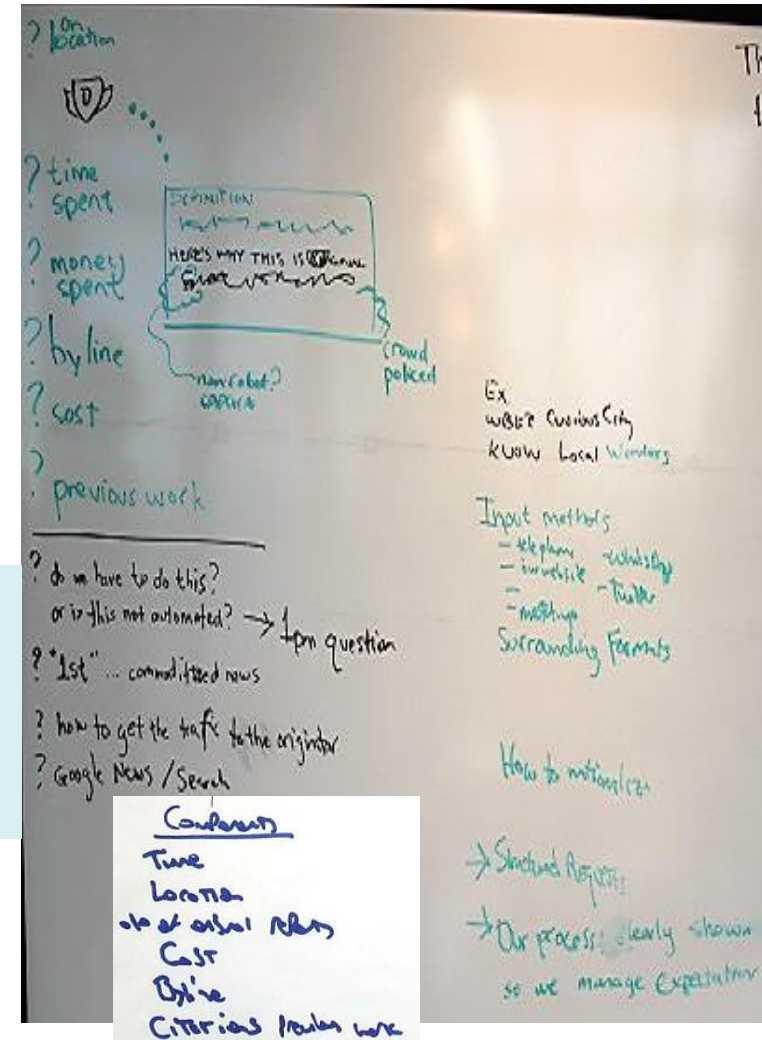 ? on
location
D
? time
spent
? money
spent
? byline
? cost
? previous work
DEFINITION
HERE'S WHY THIS IS
crowd
policed
non robot?
? do we have to do this?
or is this not automated? → 1pm question
? "1st" ... commoditized news
? how to get the trafic to the originator
? Google News / Search
Th
Ex
WBEZ Curious City
KUOW Local Wonders
Input methods
- telephone
- website
- Twitter
- meetup
Surrounding Formats
How to
→ Structured Requests
→ Our process: clearly shown
so we manage expectation
Components
Time
Location
% of
Cost
Byline
Citations Previous work